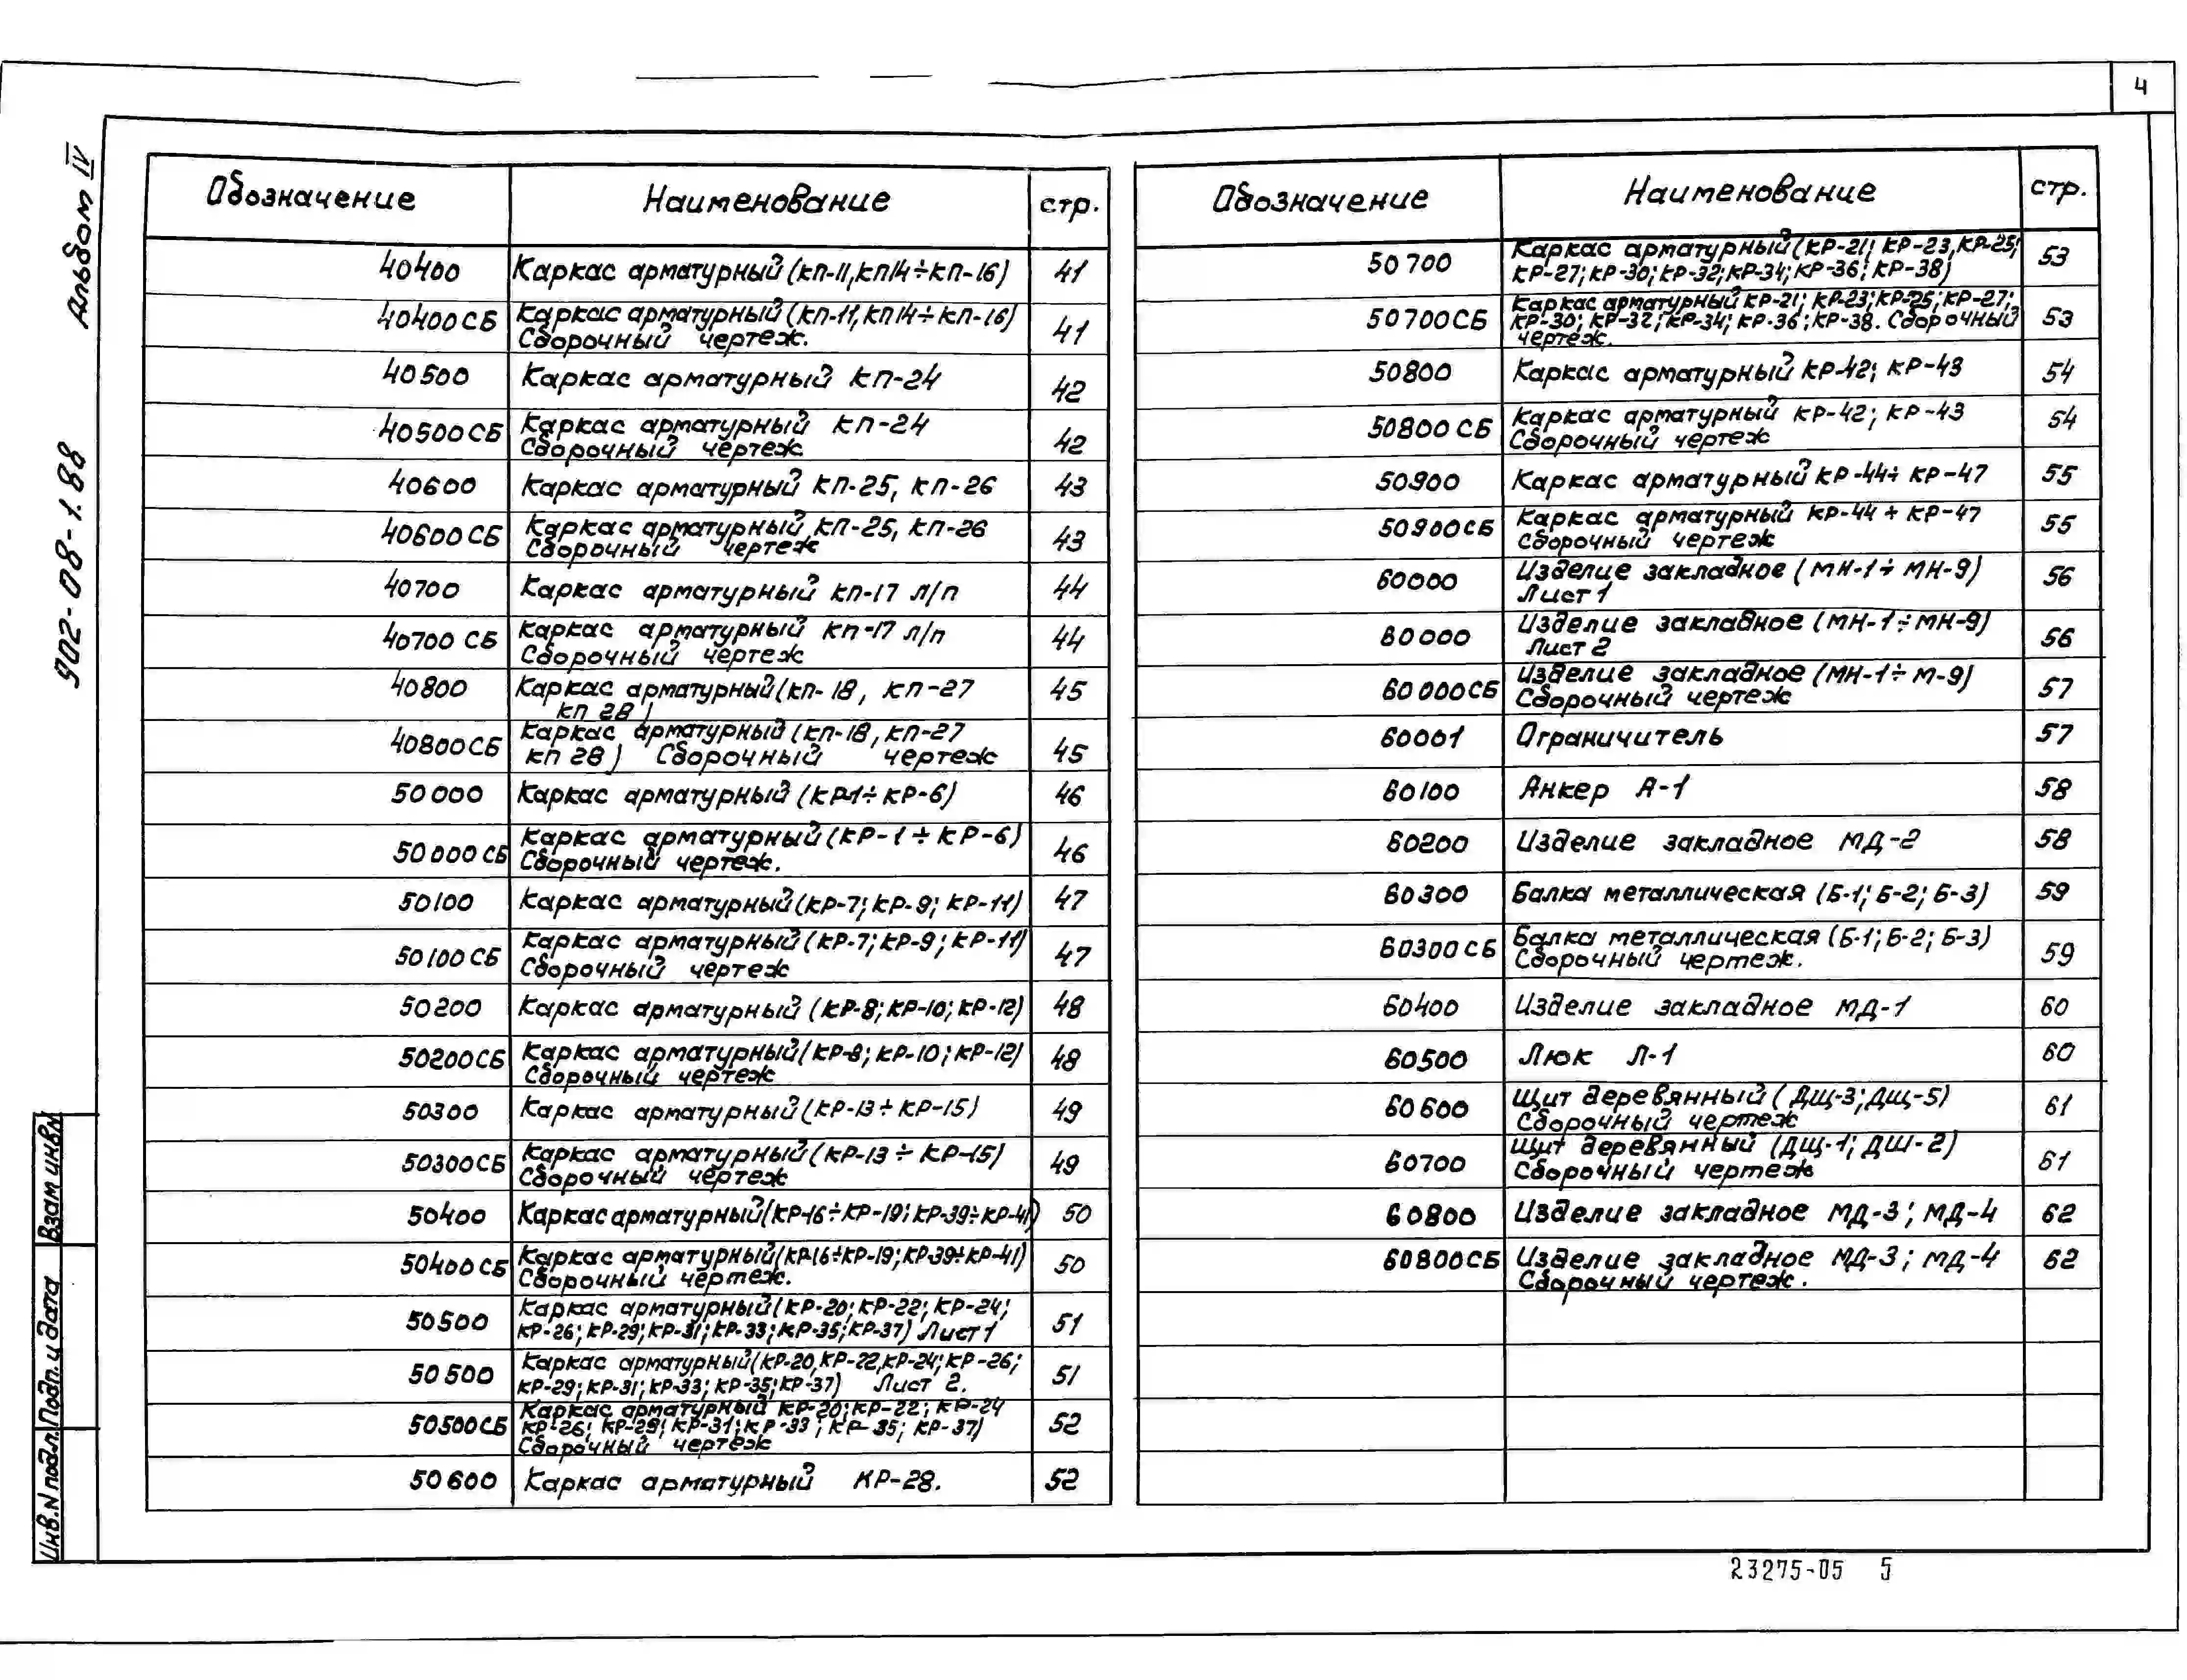 4
Альбом IV
902-08-1.88
Обозначение Наименование стр.
40400 Каркас арматурный (КП-11,КП14÷КП-16) 41
40400СБ Каркас арматурный (КП-11,КП14÷КП-16)
Сборочный чертеж. 41
40500 Каркас арматурный КП-24 42
40500СБ Каркас арматурный КП-24
Сборочный чертеж 42
40600 Каркас арматурный КП-25, КП-26 43
40600СБ Каркас арматурный КП-25, КП-26
Сборочный чертеж 43
40700 Каркас арматурный КП-17 л/п 44
40700 СБ Каркас арматурный КП-17 л/п
Сборочный чертеж 44
40800 Каркас арматурный(КП-18, КП-27
КП 28) 45
40800СБ Каркас арматурный (КП-18, КП-27
КП 28) Сборочный чертеж 45
50000 Каркас арматурный (КР-1÷КР-6) 46
50000СБ Каркас арматурный (КР-1÷КР-6)
Сборочный чертеж. 46
50100 Каркас арматурный(КР-7; КР-9; КР-11) 47
50100СБ Каркас арматурный (КР-7; КР-9; КР-11)
Сборочный чертеж 47
50200 Каркас арматурный (КР-8; КР-10; КР-12) 48
50200СБ Каркас арматурный(КР-8; КР-10; КР-12)
Сборочный чертеж 48
50300 Каркас арматурный(КР-13÷КР-15) 49
50300СБ Каркас арматурный (КР-13÷КР-15)
Сборочный чертеж 49
50400 Каркас арматурный(КР-16÷КР-19; КР-39÷КР-41) 50
50400СБ Каркас арматурный(КР-16÷КР-19; КР-39÷КР-41)
Сборочный чертеж. 50
50500 Каркас арматурный(КР-20; КР-22; КР-24;
КР-26; КР-29; КР-31; КР-33; КР-35; КР-37) Лист 1 51
50500 Каркас арматурный(КР-20, КР-22, КР-24; КР-26;
КР-29; КР-31; КР-33; КР-35; КР-37) Лист 2. 51
50500СБ Каркас арматурный КР-20; КР-22; КР-24
КР-26; КР-29; КР-31; КР-33; КР-35; КР-37)
Сборочный чертеж 52
50600 Каркас арматурный КР-28. 52
Обозначение Наименование стр.
50700 Каркас арматурный(КР-21; КР-23, КР-25;
КР-27; КР-30; КР-32; КР-34; КР-36; КР-38) 53
50700СБ Каркас арматурный КР-21; КР-23; КР-25; КР-27;
КР-30; КР-32; КР-34; КР-36; КР-38. Сборочный
чертеж. 53
50800 Каркас арматурный КР-42; КР-43 54
50800 СБ Каркас арматурный КР-42; КР-43
Сборочный чертеж 54
50900 Каркас арматурный КР-44÷КР-47 55
50900СБ Каркас арматурный КР-44÷КР-47
Сборочный чертеж 55
60000 Изделие закладное (МН-1÷МН-9)
Лист 1 56
60000 Изделие закладное (МН-1÷МН-9)
Лист 2 56
60000СБ Изделие закладное (МН-1÷М-9)
Сборочный чертеж 57
60001 Ограничитель 57
60100 Анкер А-1 58
60200 Изделие закладное МД-2 58
60300 Балка металлическая (Б-1; Б-2; Б-3) 59
60300СБ Балка металлическая (Б-1; Б-2; Б-3)
Сборочный чертеж. 59
60400 Изделие закладное МД-1 60
60500 Люк Л-1 60
60600 Щит деревянный (ДЩ-3; ДЩ-5)
Сборочный чертеж 61
60700 Щит деревянный (ДЩ-1; ДЩ-2)
Сборочный чертеж 61
60800 Изделие закладное МД-3; МД-4 62
60800СБ Изделие закладное МД-3; МД-4
Сборочный чертеж. 62
Взам инвN
Подп. и дата
Инв.N подл.
23275-05 5